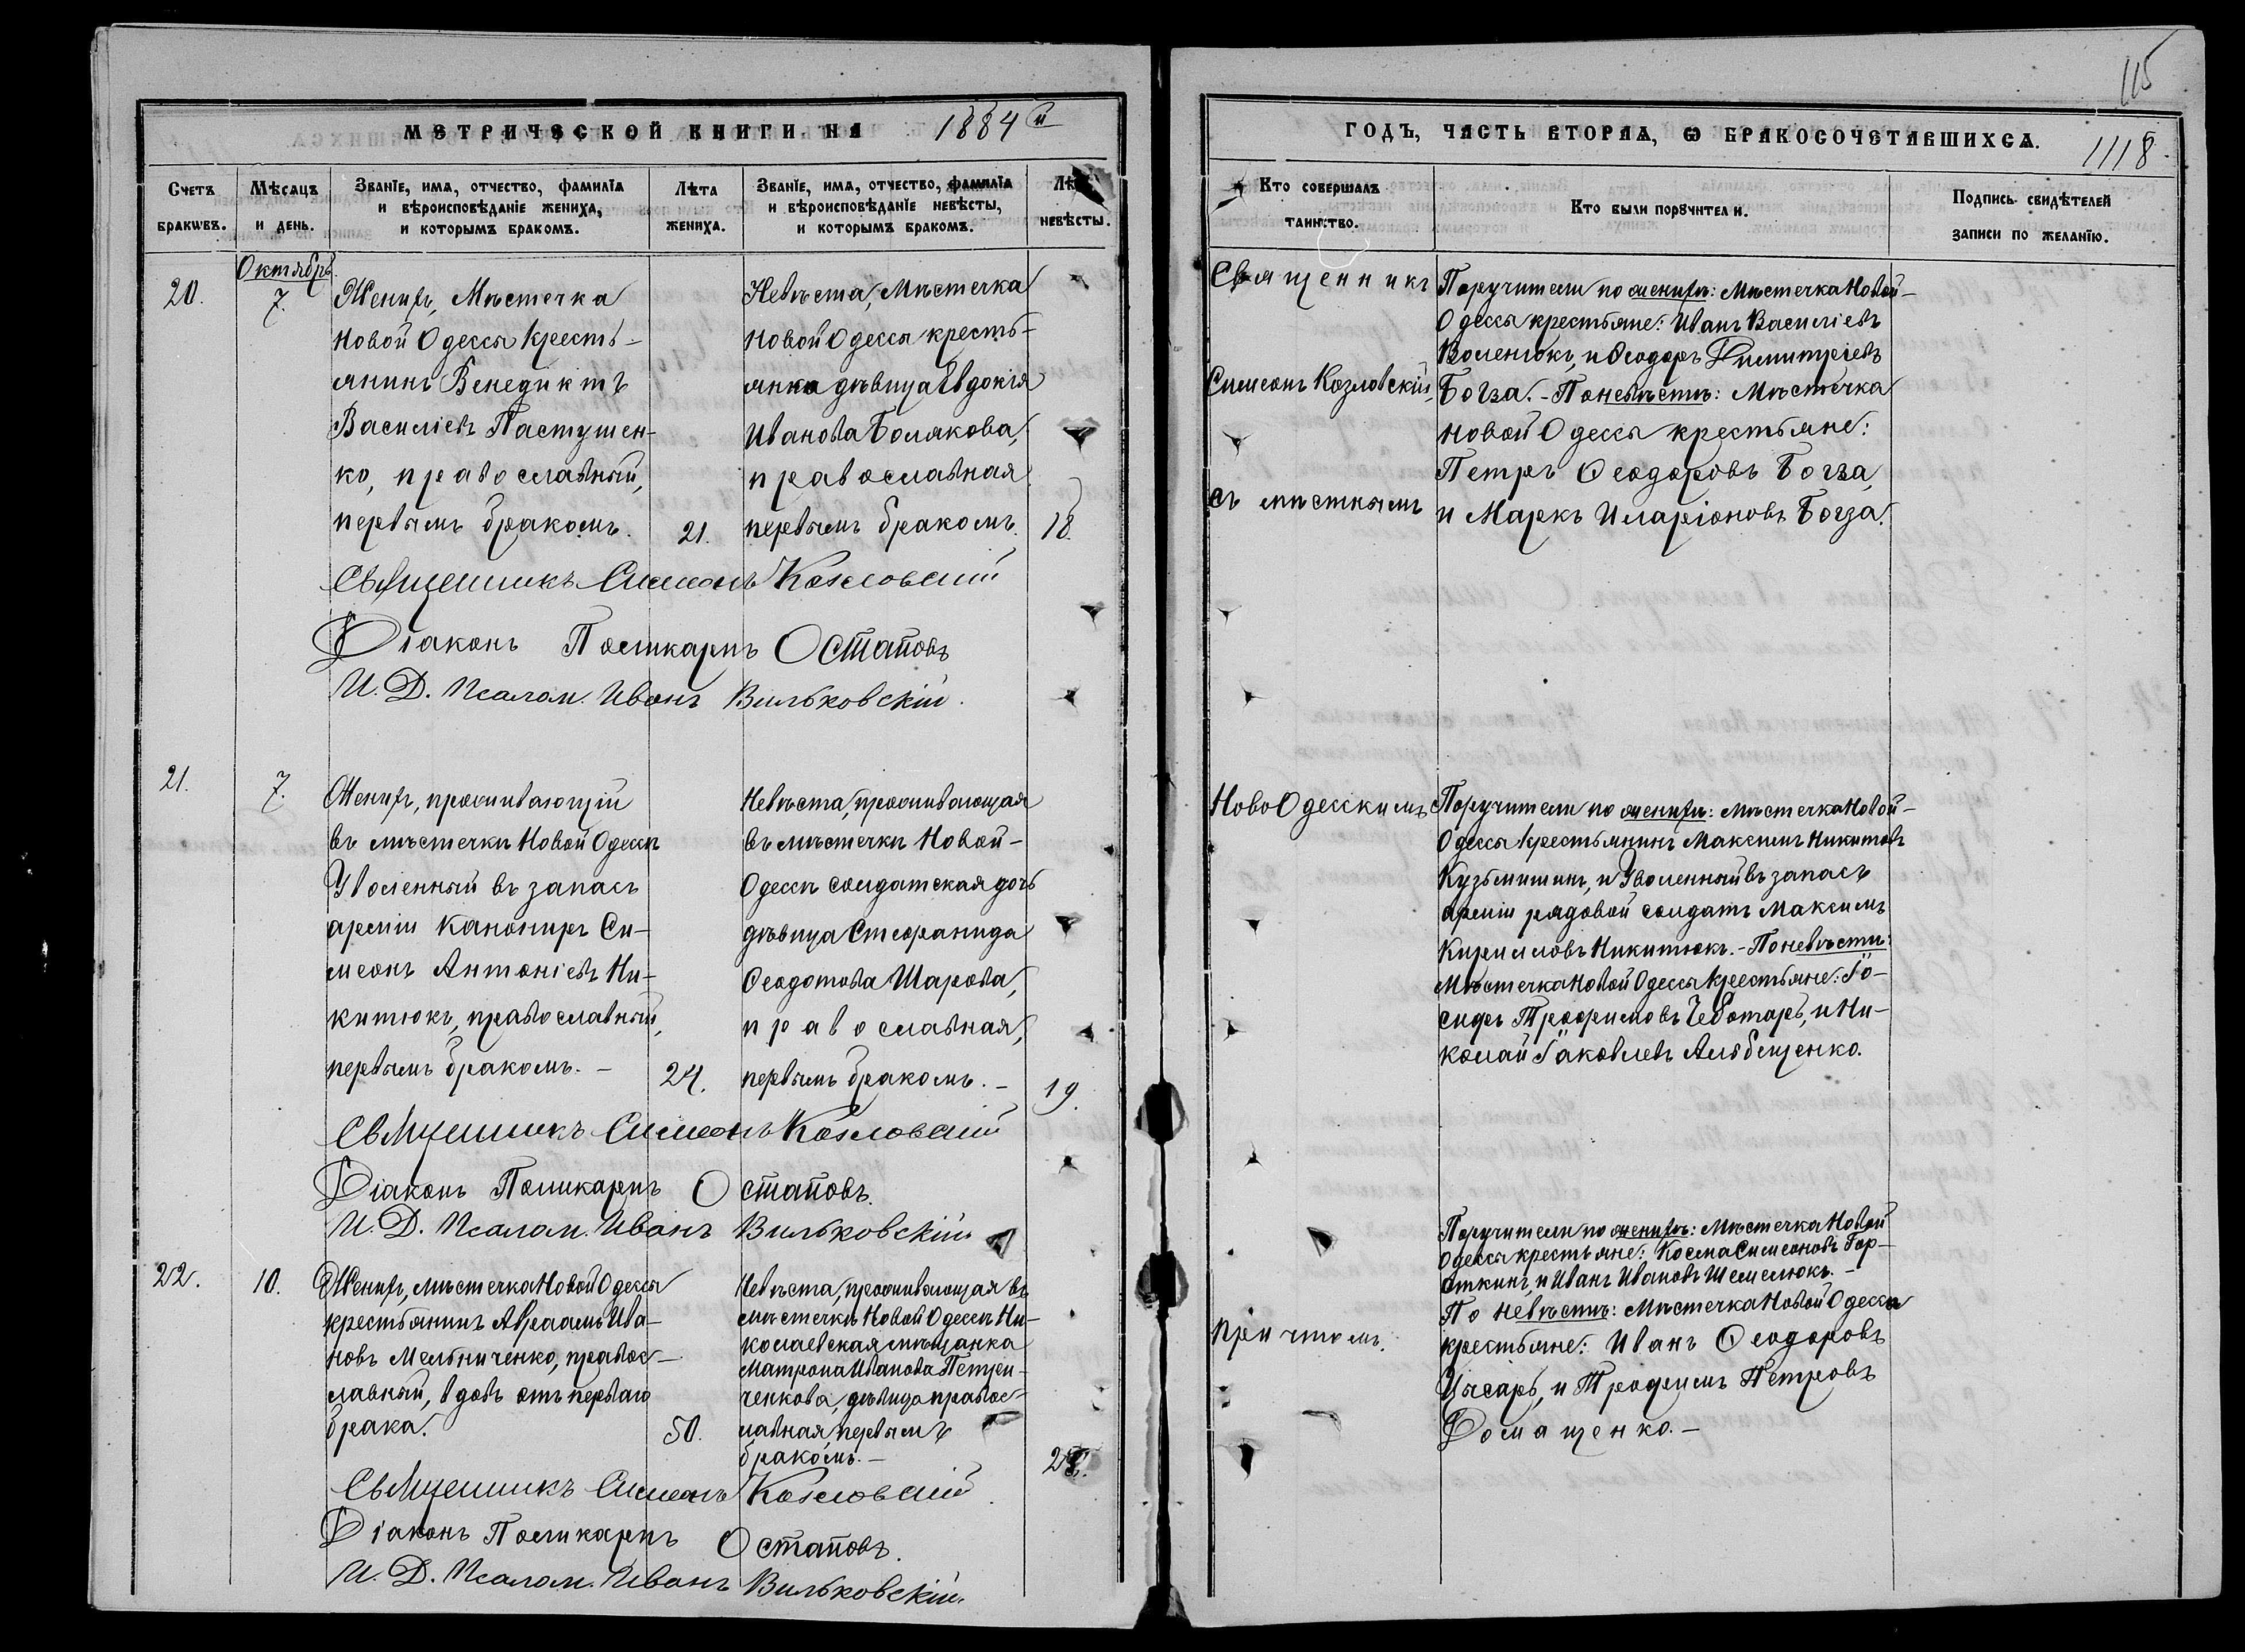 115
МЕТРИЧЕСКОЙ КНИГИ НА 1884й
ГОДЪ, ЧАСТЬ ВТОРАѦ, Ѡ БРАКОСОЧЕТАВШИХСѦ.
1118
Счетъ бракѡвъ.
Мѣсяцъ и день.
Званїе, имѧ, отчество, фамилїа и вѣроисповѣданіе жениха, и которымъ бракомъ.
Лѣта жениха.
Званїе, имѧ, отчество, фамилїа и вѣроисповѣданїе невѣсты, и которымъ бракомъ.
невѣсты.
Кто совершалъ таинство.
Кто были порꙋчители.
Подпись свидѣтелей записи по желанїю.
Октябрь.
20.
7.
Женихъ, Мѣстечка
Новой Одессы Кресть-
янинъ Венедиктъ
Василіевъ Пастушен-
ко, православный,
первымъ бракомъ.
21.
Невѣста, Мѣстечка
Новой Одессы кресть-
янка дѣвица Евдокія
Иванова Болякова,
православная
первымъ бракомъ.
18.
Священникъ
Симеонъ Козловскій,
съ мѣстнымъ
Поручители по женихѣ: Мѣстечка Новой-
Одессы крестьяне: Иванъ Василіевъ
Воленюкъ, и Ѳеодоръ Димитріевъ
Богза. - По невѣстѣ: Мѣстечка
Новой Одессы крестьяне:
Петръ Ѳеодоровъ Богза,
и Маркъ Иларіоновъ Богза.
Священникъ Симеонъ Козловскій
Діаконъ Поликарпъ Остаповъ
И. Д. Псалом. Иванъ Вильковскій.
21.
7.
Женихъ, проживающій
въ мѣстечкѣ Новой Одессѣ
Уволенный въ запасъ
арміи Канониръ Си-
меонъ Антоніевъ Ни-
китюкъ, православный,
первымъ бракомъ. -
24.
Невѣста, проживающая
въ мѣстечкѣ Новой-
Одессѣ солдатская дочь
дѣвица Стефанида
Ѳеодотова Шарова,
православная,
первымъ бракомъ. -
19.
НовоОдесскимъ
Поручители по женихѣ: мѣстечка Новой-
Одессы Крестьянинъ Максимъ Никитовъ
Кузьмишинъ, и Уволенный въ запасъ
арміи рядовой солдатъ Максимъ
Кирилловъ Никитюкъ. - По невѣстѣ:
Мѣстечка Новой Одессы Крестьяне: Іо-
сифъ Трофимовъ Чеботарь, и Ни-
колай Іаковлевъ Альбещенко.
Священникъ Симеонъ Козловскій
Діаконъ Поликарпъ Остаповъ.
И. Д. Псалом. Иванъ Вильковскій
22.
10.
Женихъ, мѣстечка Новой Одессы
крестьянинъ Авраамъ Ива-
новъ Мельниченко, правос-
лавный, вдовъ отъ перваго
брака.
50.
Невѣста, проживающая въ
мѣстечкѣ Новой Одессѣ Ни-
колаевская мѣщанка
Матрона Иванова Петри-
ченкова, дѣвица правос-
лавная первымъ
бракомъ. -
причтомъ.
Поручители по женихѣ: Мѣстечка Новой
Одессы крестьяне: Косма Симеоновъ Гор-
откинъ, и Иванъ Ивановъ Шемелюкъ. -
По невѣстѣ: Мѣстечка Новой Одессы
крестьяне: Иванъ Ѳеодоровъ
Цысарь, и Трофимъ Петровъ
Домащенко. -
Священникъ Симеонъ Козловскій.
Діаконъ Поликарпъ Остаповъ.
И. Д. Псалом. Иванъ Вильковскій.